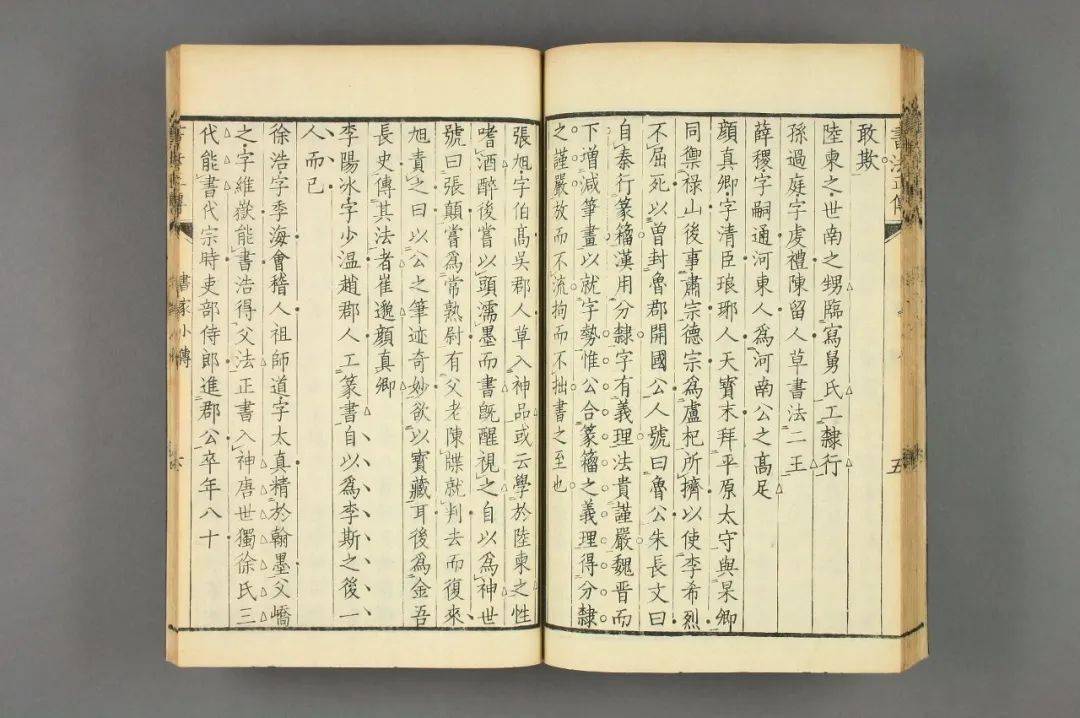 書法正傳
五
敢欺
陸柬之世南之甥臨寫舅氏工隸行
孫過庭字虔禮陳留人草書法二王
薛稷字嗣通河東人爲河南公之高足
顔真卿字清臣琅琊人天寶末拜平原太守與杲卿
同禦祿山後事肅宗德宗爲盧杞所擠以使李希烈
不屈死以曽封魯郡開國公人號曰魯公朱長文曰
自秦行篆籀漢用分隸字有義理法貴謹嚴魏晋而
下增減筆畫以就字勢惟公合篆籀之義理得分隸
之謹嚴放而不流拘而不拙書之至也
張旭字伯髙吳郡人草入神品或云學於陸柬之性
嗜酒醉後嘗以頭濡墨而書旣醒視之自以爲神世
號曰張顛嘗爲常熟尉有父老陳牒就判去而復來
旭責之曰以公之筆迹奇妙欲以寶藏耳後爲金吾
長史傳其法者崔邈顔真卿
李陽冰字少温趙郡人工篆書自以爲李斯之後一
人而已
徐浩字季海會稽人祖師道字太真精於翰墨父嶠
之字維嶽能書浩得父法正書入神唐世獨徐氏三
代能書代宗時吏部侍郎進郡公卒年八十
書家小傳